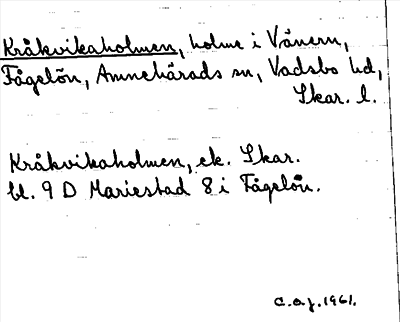 Kråkvikaholmen, holme i Vänern,
Fågelön, Amnehärads sn, Vadsbo hd,
Skar. l.
Kråkvikaholmen, ek. Skar.
bl. 9 D Mariestad 8 i Fågelön.
C.a.j. 1961.